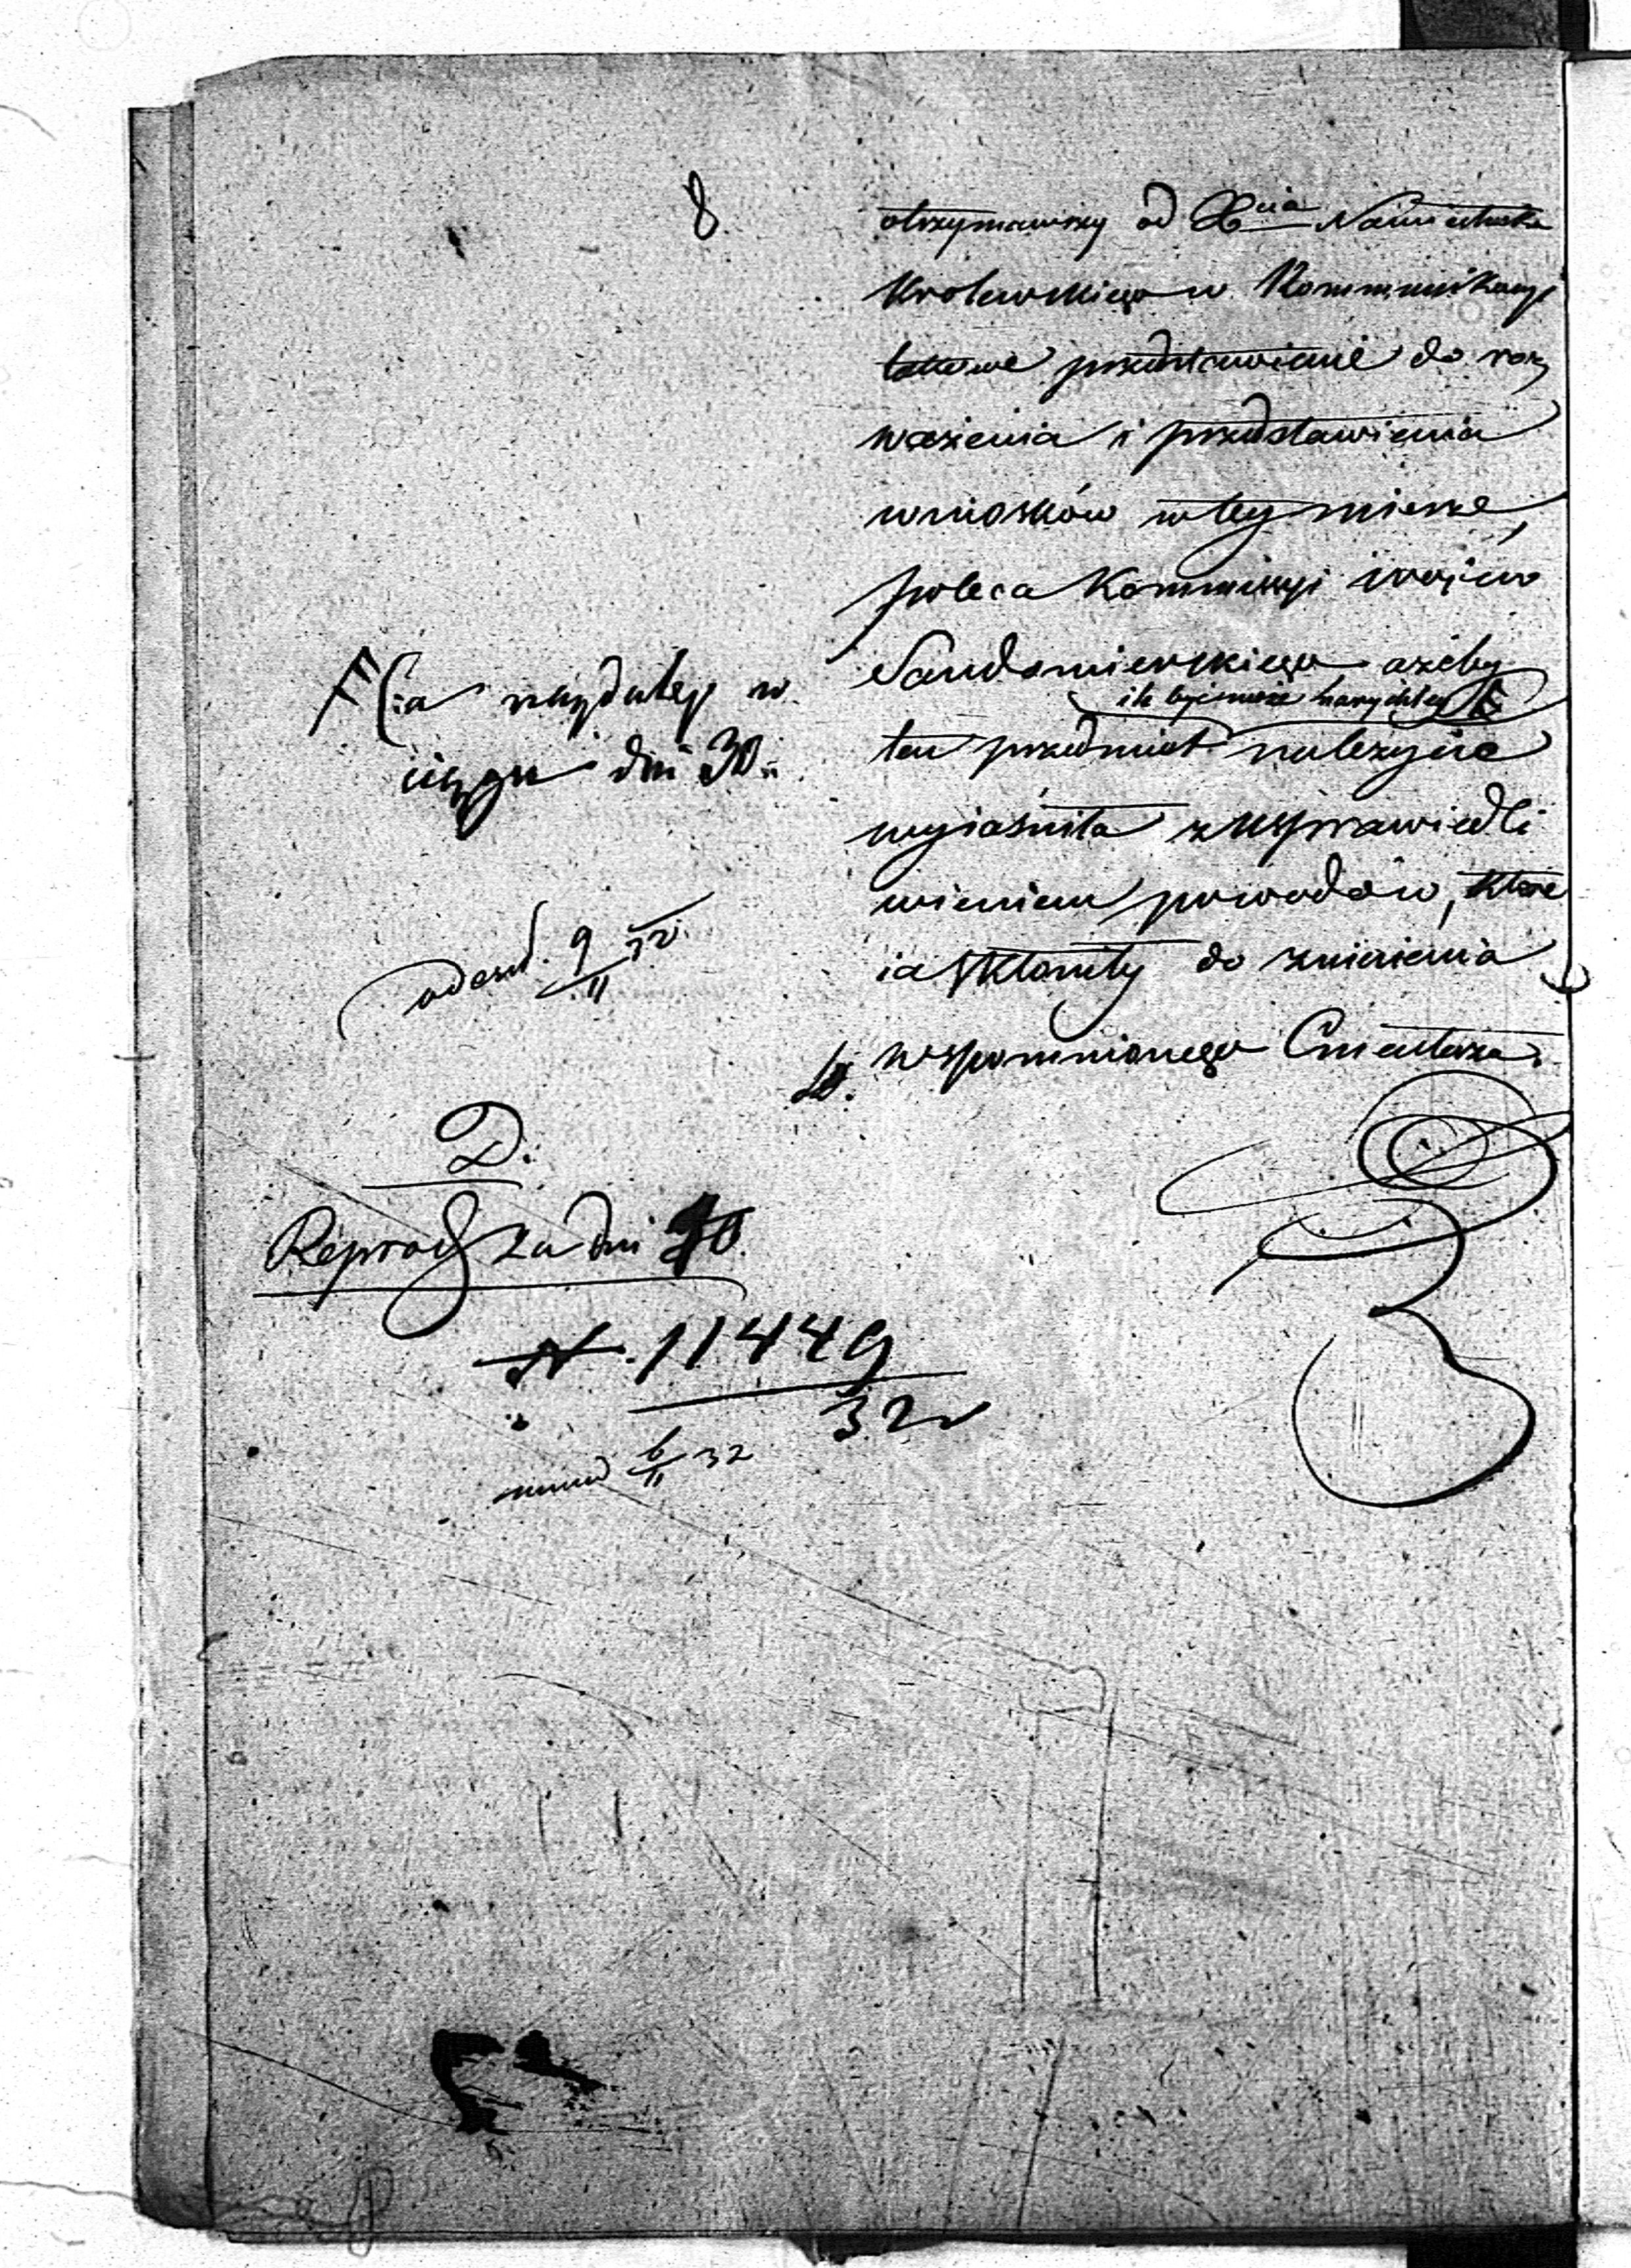 8
otrzymawszy od Xcia Namiestnika
Krolewskiego w Kommunikacyi
takowe przedstawienie do roz
ważenia i przedstawienia
wniosków w tey mierze,
poleca Kommissyi woiew
Sandomierskiego ażeby
ile być może nayrychley F
ten przedmiot należycie
wyiaśniła z usprawiedli
wieniem powodów, które
ią skłoniły do zniesienia
wspomnionego Cmentarza.
F (:a naydaley w
ciągu dni 30:
odesł. 9/II 32.
D.
Reprod za dni 40.
N. 11449
32
6/II 32